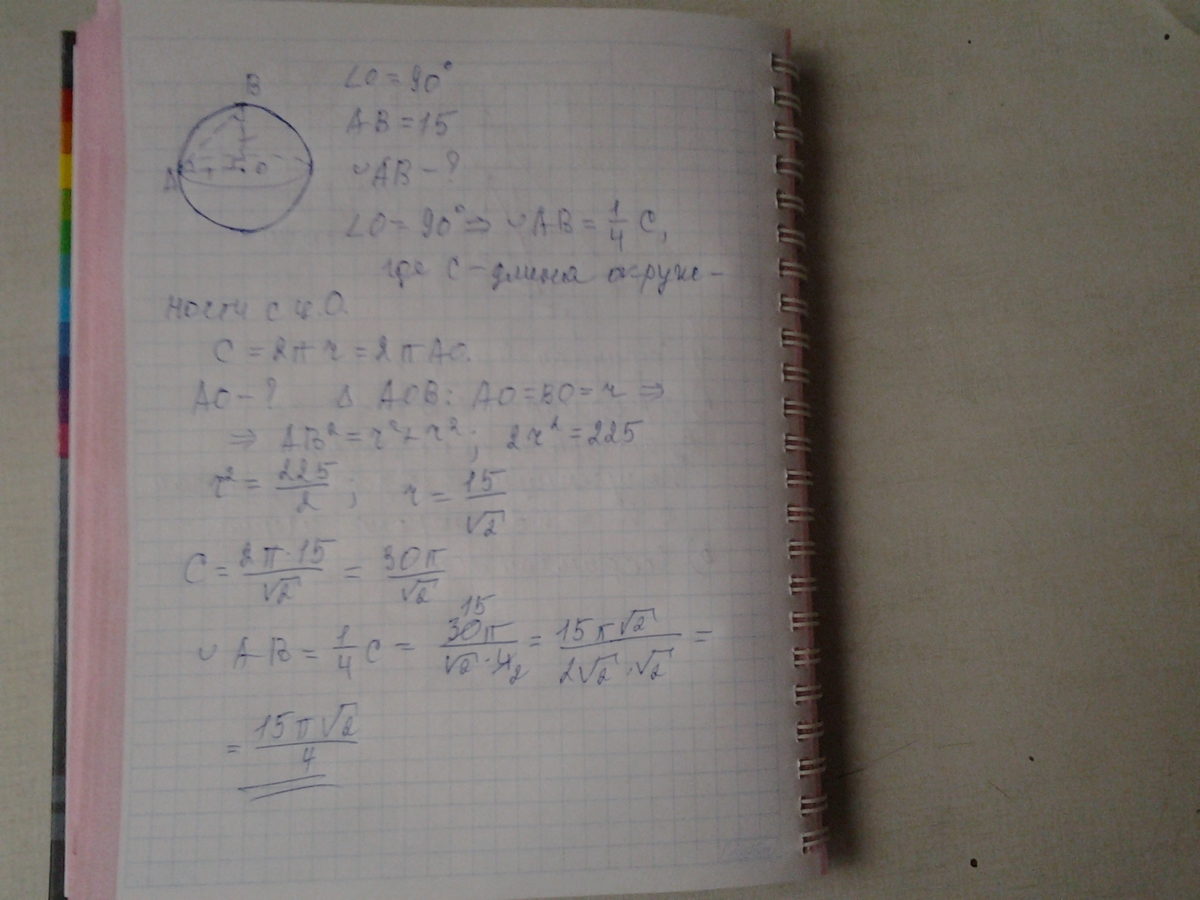 B
A
O
∠O = 90°
AB = 15
◡AB - ?
∠O = 90° ⇒ ◡AB = 1/4 C,
где C - длина окруж-
ности с ц.O.
C = 2πr = 2πAO.
AO - ? Δ AOB: AO = BO = r ⇒
⇒ AB² = r² + r²; 2r² = 225
r² = 225/2; r = 15/√2
C = 2π·15/√2 = 30π/√2
◡AB = 1/4 C = 15 30π/√2·4 2 = 15π√2/2√2·√2 =
= 15π√2/4